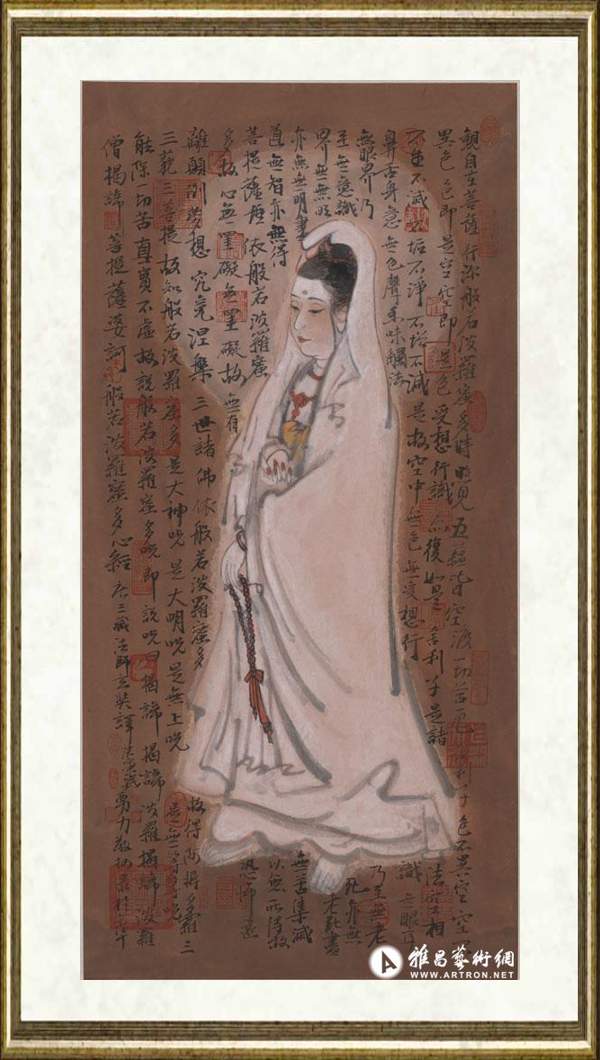 觀自在菩薩行深般若波羅蜜多時照見五蘊皆空渡一切苦厄舍利子色不異空空不
異色色即是空空即是色受想行識亦復如是舍利子是諸法空相
不生不滅不垢不淨不增不減是故空中無色無受想行識無眼耳
鼻舌身意無色聲香味觸法
無眼界乃
至無意識
界無無明
亦無無明盡
乃至無老
死亦無
老死盡
無苦集滅
道無智亦無得
以無所得故
菩提薩埵依般若波羅蜜
多故心無罣礙無罣礙故無有恐怖遠
離顛倒夢想究竟涅槃三世諸佛依般若波羅蜜多
故得阿耨多羅三
三藐三菩提故知般若波羅蜜多是大神咒是大明咒是無上咒
是無等等咒
能除一切苦真實不虛故說般若波羅蜜多咒即說咒曰揭諦揭諦波羅揭諦波羅
僧揭諦菩提薩婆訶般若波羅蜜多心經唐三藏法師玄奘譯
雅昌藝術網
WWW.ARTRON.NET